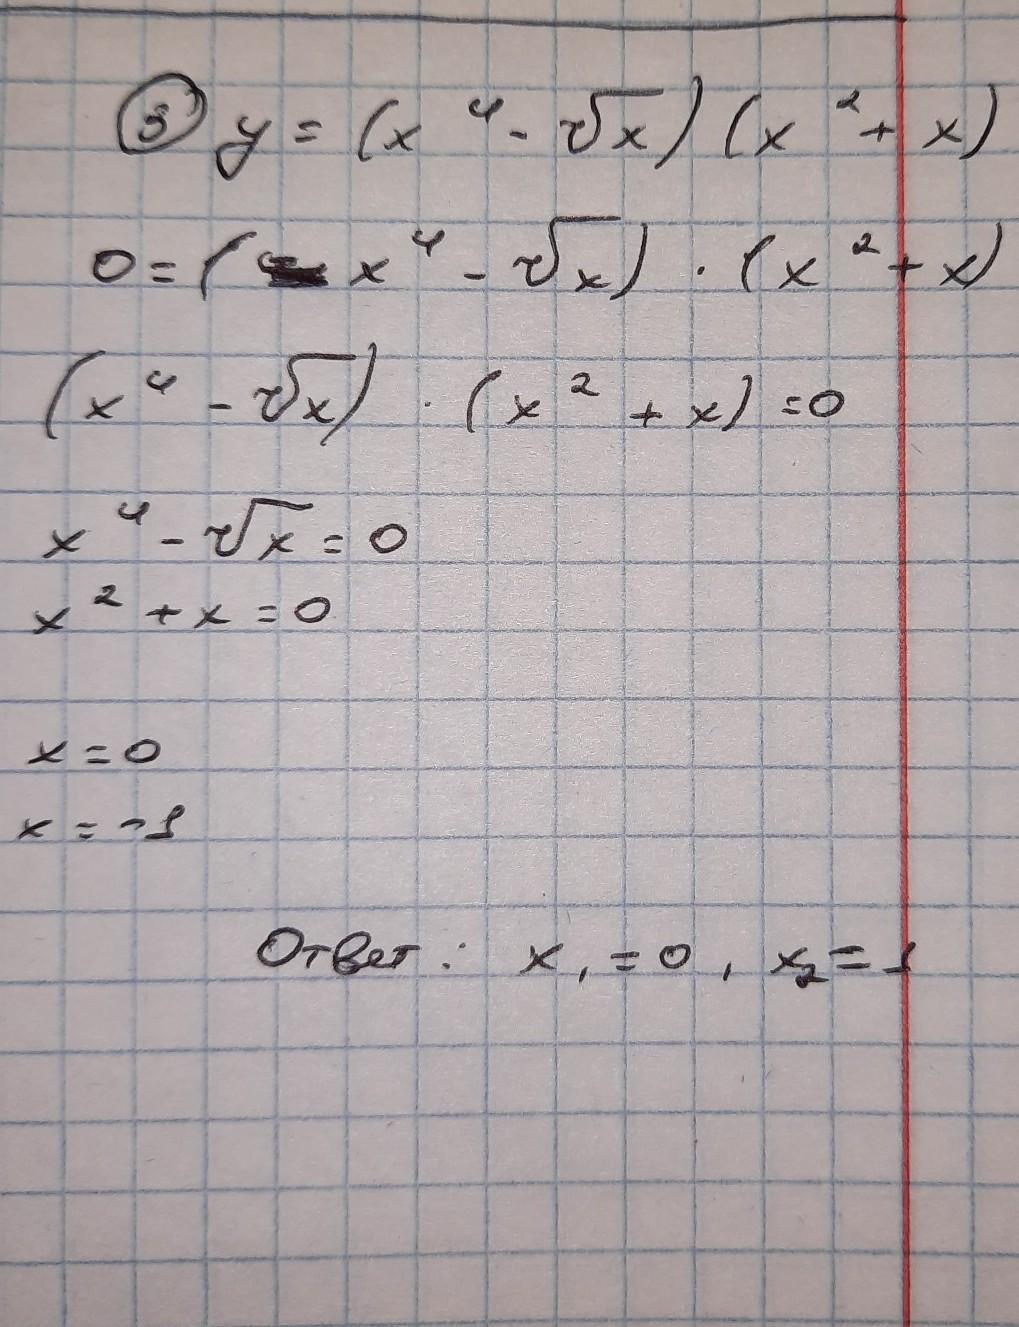 ③ y = (x⁴ - √x) (x² + x)
0 = (x⁴ - √x) · (x² + x)
(x⁴ - √x) · (x² + x) = 0
x⁴ - √x = 0
x² + x = 0
x = 0
x = -1
Ответ: x₁ = 0, x₂ = 1